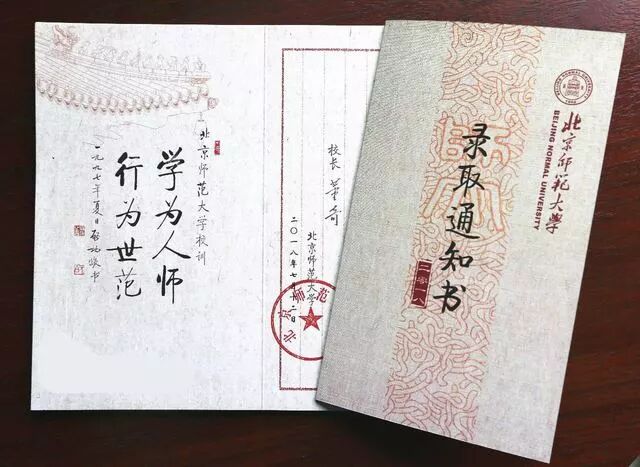 北京师范大学校训
学为人师
行为世范
一九九七年夏日启功书
校长 董奇
北京师范大学
二〇一八年七月
北京师范
北京师范大学
BEIJING NORMAL UNIVERSITY
BEIJING NORMAL UNIVERSITY
1902
录取通知书
二零一八